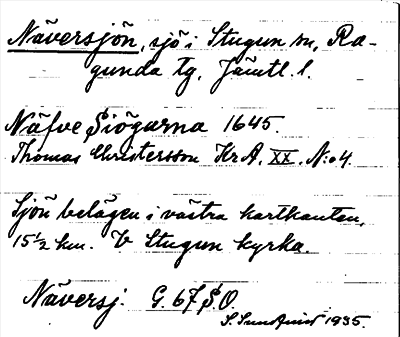 Näversjön, sjö i Stugun sn, Ra-
gunda tg, Jämtl. l.
Näfve Siögarna 1645.
Thomas Christersson KrA. XX. N:o 4.
Sjön belägen i västra kartkanten,
15 1/2 km. V Stugun kyrka.
Näversj: G. 67 S.O.
S. Sundqvist 1935.